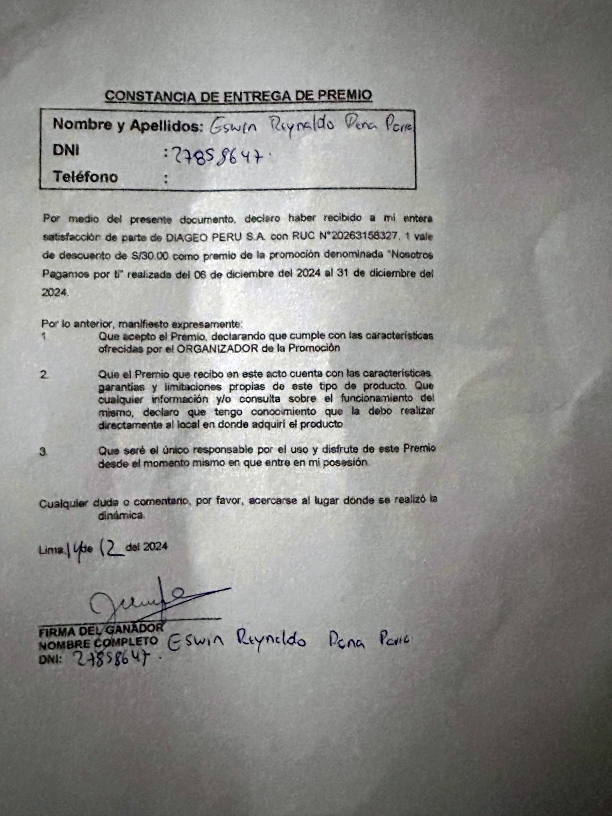 CONSTANCIA DE ENTREGA DE PREMIO
Nombre y Apellidos: Eswin Reynaldo Pena Parra
DNI : 27858647.
Teléfono :
Por medio del presente documento, declaro haber recibido a mi entera
satisfacción de parte de DIAGEO PERU S.A. con RUC N°20263158327, 1 vale
de descuento de S/30.00 como premio de la promoción denominada "Nosotros
Pagamos por ti" realizada del 06 de diciembre del 2024 al 31 de diciembre del
2024.
Por lo anterior, manifiesto expresamente:
1 Que acepto el Premio, declarando que cumple con las características
ofrecidas por el ORGANIZADOR de la Promoción
2. Que el Premio que recibo en este acto cuenta con las características,
garantías y limitaciones propias de este tipo de producto. Que
cualquier información y/o consulta sobre el funcionamiento del
mismo, declaro que tengo conocimiento que la debo realizar
directamente al local en donde adquirí el producto
3. Que seré el único responsable por el uso y disfrute de este Premio
desde el momento mismo en que entre en mi posesión.
Cualquier duda o comentario, por favor, acercarse al lugar donde se realizó la
dinámica.
Lima, 14 de 12 del 2024
FIRMA DEL GANADOR
NOMBRE COMPLETO Eswin Reynaldo Pena
DNI: 27858647.